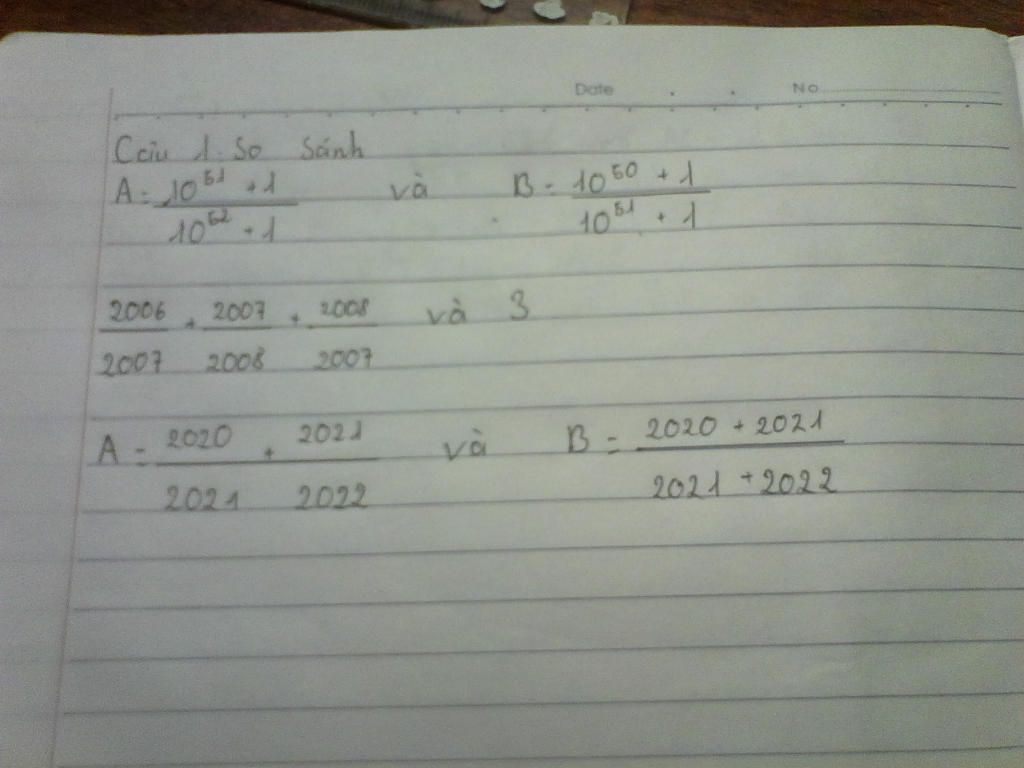 Date . . No
Câu 1. So sánh
A = 10^51 + 1 / 10^52 + 1 và B = 10^50 + 1 / 10^51 + 1
2006/2007 + 2007/2008 + 2008/2007 và 3
A = 2020/2021 + 2021/2022 và B = 2020 + 2021 / 2021 + 2022